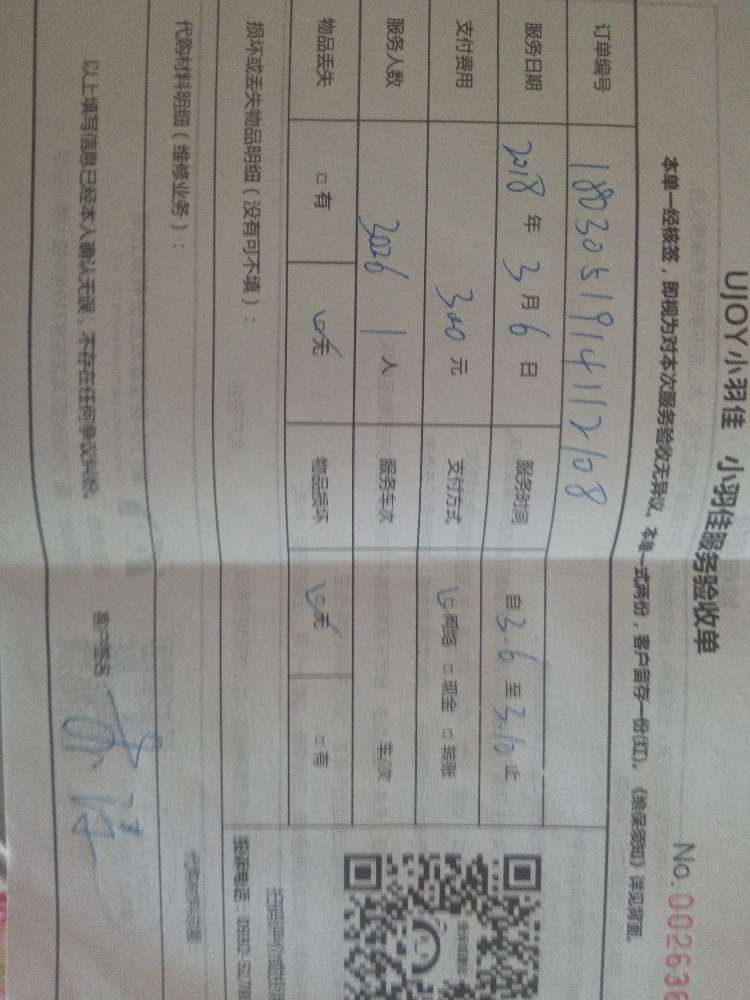 UJOY小羽佳 小羽佳服务验收单
No.002636
本单一经核签，即视为对本次服务验收无异议、本单一式两份，客户留存一份(红)。《维保须知》详见背面。
订单编号 1803051914112108
服务日期 2018年3月6日 服务时间 自3.6至3.10止
支付费用 300元 支付方式 □网络 □现金 □转账
服务人数 3026 1人 服务车次 车/次
物品丢失 □有 □无 物品损坏 □无 □有
损坏或丢失物品明细（没有可不填）：
代购材料明细（维修业务）：
以上填写信息已经本人确认无误，不存在任何争议纠纷。 客户签名